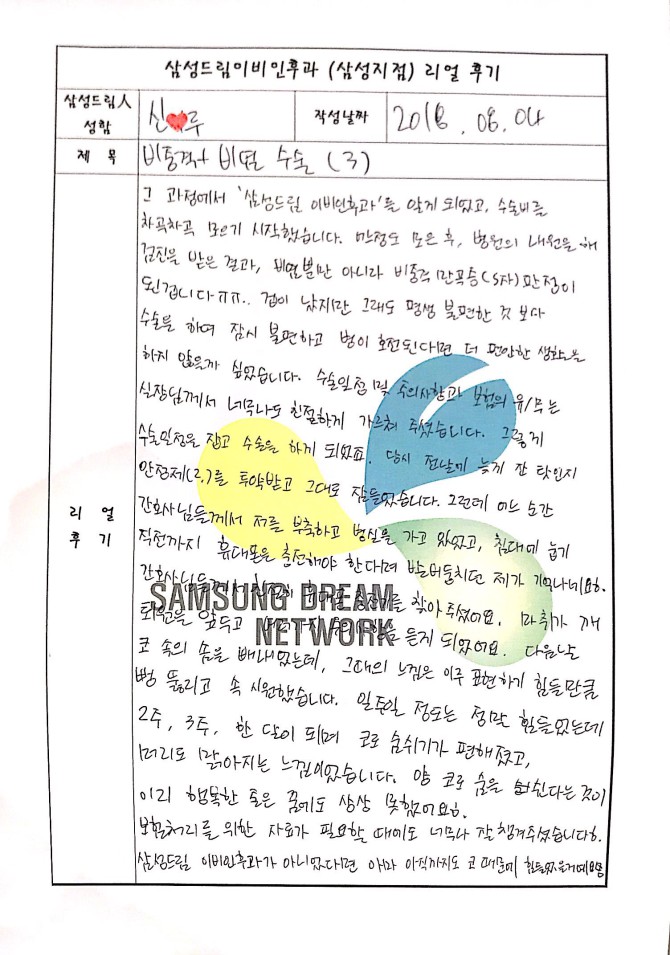 삼성드림이비인후과 (삼성지점) 리얼 후기
삼성드림人
성함
신❤루
작성날짜
2018. 08. 04
제 목
비중격+ 비염 수술 (3)
리 얼
후 기
그 과정에서 '삼성드림 이비인후과'를 알게 되었고, 수술비를
차곡차곡 모으기 시작했습니다. 만정도 모은 후, 병원의 내원을 해
검진을 받은 결과, 비염뿐만 아니라 비중격 만곡증(S자) 판정이
된겁니다ㅠㅠ.. 겁이 났지만 그래도 평생 불편한 것 보다
수술을 하며 잠시 불편하고 병이 호전된다면 더 편안한 생활을
하지 않을까 싶었습니다. 수술일정 및 주의사항과 보험의 유/무는
실장님께서 너무나도 친절하게 가르쳐 주셨습니다. 그렇게
수술일정을 잡고 수술을 하게 되었죠. 당시 전날에 늦게 잔 탓인지
안정제(?)를 투약받고 그대로 잠들었습니다. 그런데 어느 순간
간호사님들께서 저를 부축하고 병실을 가고 있었고, 침대에 눕기
직전까지 휴대폰을 충전해야 한다며 발버둥치던 제가 기억나네요.
간호사님들께서 휴대폰 충전기를 찾아 주셨어요. 마취가 깨
퇴원을 앞두고 듣게 되었어요. 다음날
코 속의 솜을 빼내었는데, 그때의 느낌은 이루 표현하기 힘들만큼
뻥 뚫리고 속 시원했습니다. 일주일 정도는 정말 힘들었는데
2주, 3주, 한 달이 되며 코로 숨쉬기가 편해졌고,
머리도 맑아지는 느낌이었습니다. 양 코로 숨을 쉰다는 것이
이리 행복한 줄은 꿈에도 상상 못했어요.
보험처리를 위한 자료가 필요할 때에도 너무나 잘 챙겨주셨습니다.
삼성드림 이비인후과가 아니었다면 아마 아직까지도 코 때문에 힘들었을거예요
SAMSUNG DREAM
NETWORK